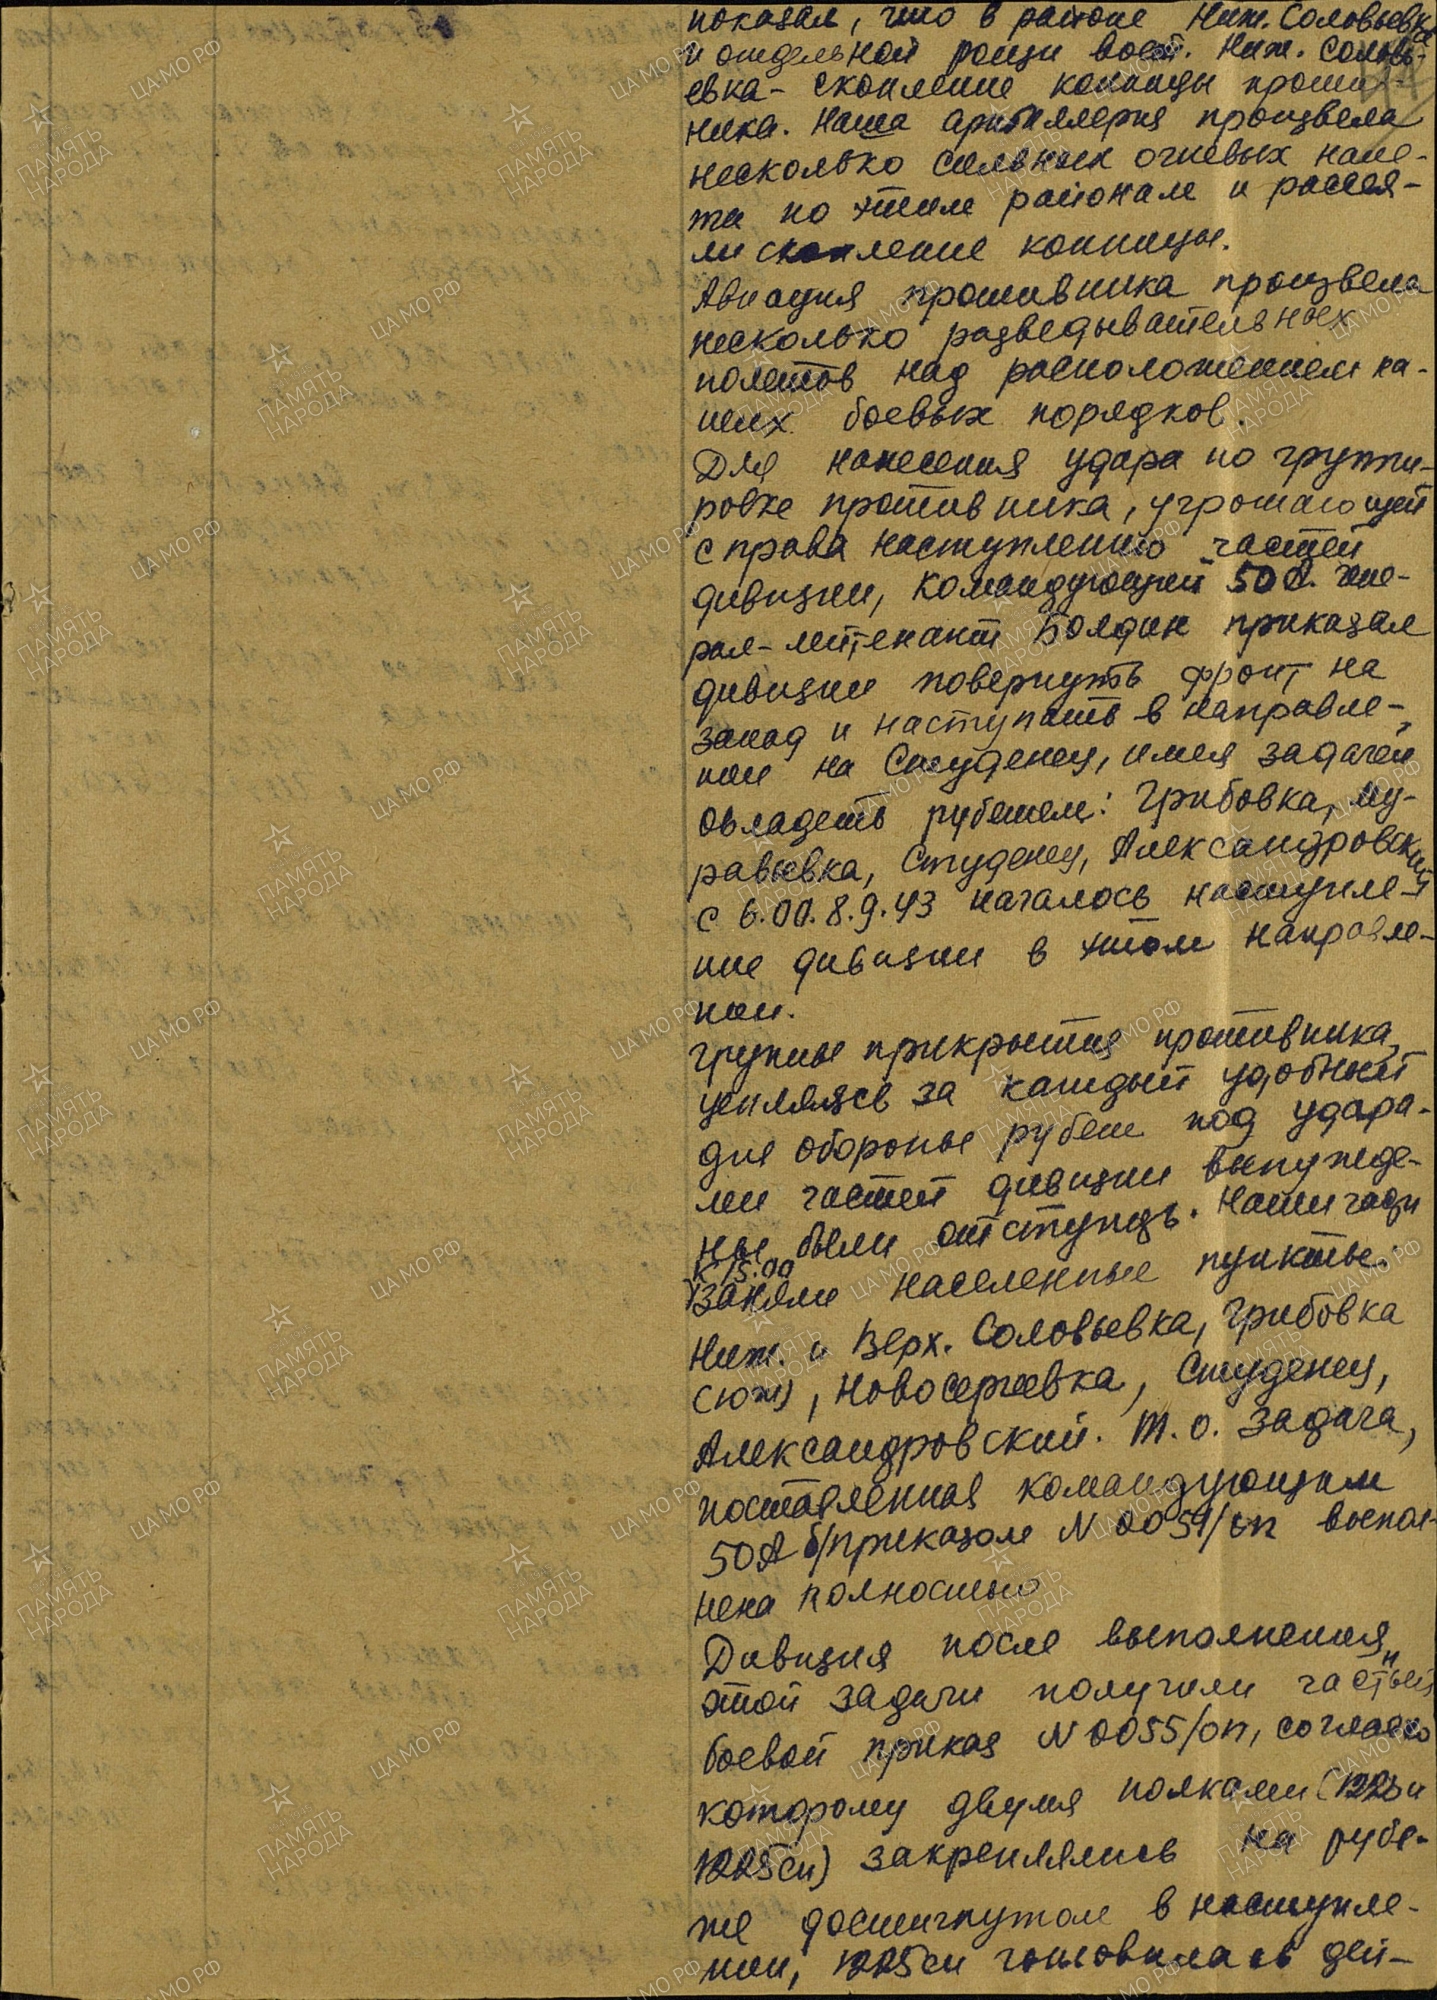 показал, что в районе Ниж. Соловьевка
и отдельной рощи вост. Ниж. Соловь-
евка - скопление конницы против-
ника. Наша артиллерия произвела
несколько сильных огневых нале-
та по этим районам и рассея-
ли скопление конницы.
Авиация противника произвела
несколько разведывательных
полетов над расположением на-
ших боевых порядков.
Для нанесения удара по группи-
ровке противника, угрожающей
справа наступлению частей
дивизии, командующий 50А. гене-
рал-лейтенант Болдин приказал
дивизии повернуть фронт на
запад и наступать в направле-
нии на Студенец, имея задачей
овладеть рубежем: Грибовка, Му-
равьевка, Студенец, Александровский
с 6.00. 8.9.43 началось наступле-
ние дивизии в этом направле-
нии.
Группы прикрытия противника,
цепляясь за каждый удобный
для обороны рубеж под удара-
ми частей дивизии вынужде-
ны были отступить. Наши части
к 15.00
заняли населенные пункты:
Ниж. и Верх. Соловьевка, Грибовка
(юж), Новосергеевка, Студенец,
Александровский. Т.о. задача,
поставленная командующим
50А б/приказом N 0054/оп выпол-
нена полностью
Дивизия после выполнения
этой задачи получили частный
боевой приказ N 0055/оп, согласно
которому двумя полками (1223 и
1225сп) закреплялись на рубе-
же достигнутом в наступле-
нии, 1225сп готовилась дей-